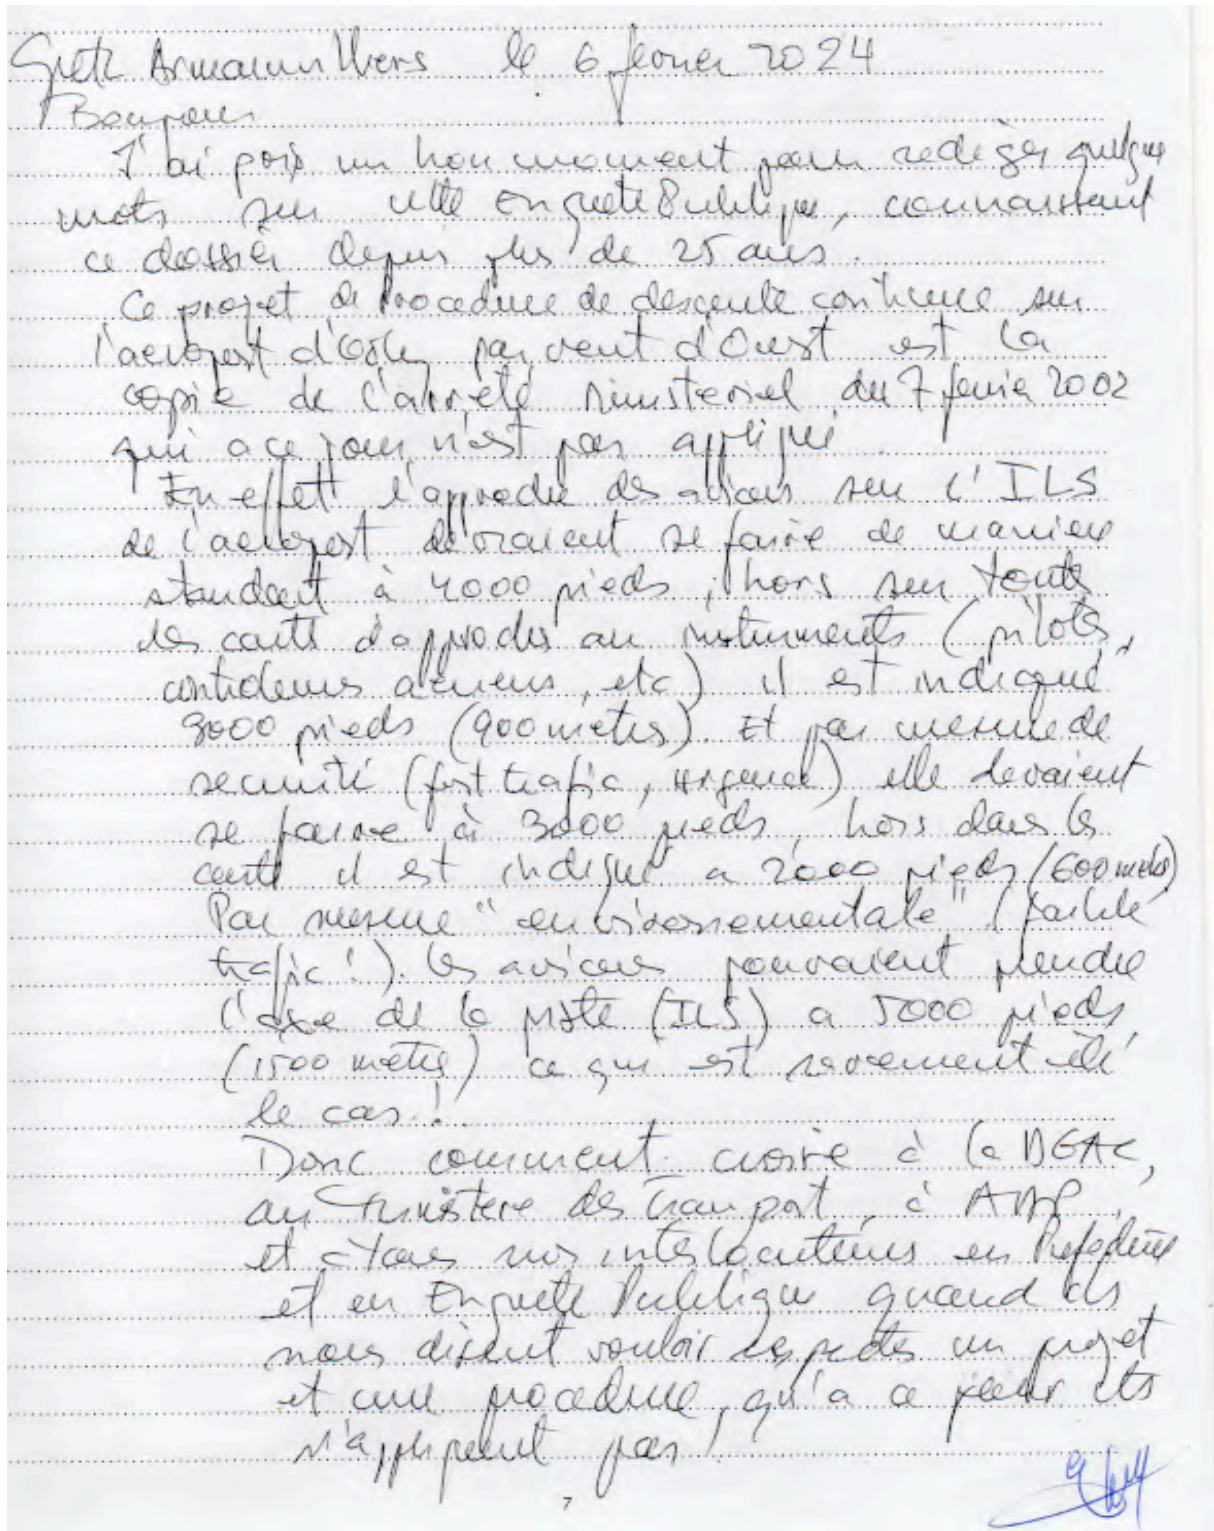 Gretz Armainvilliers le 6 février 2024
Bonjour
J'ai pris un bon moment pour rediger quelque
mots sur cette Enquete Publique, connaissant
ce dossier depuis plus de 25 ans.
Ce projet de Procedure de descente continue sur
l'aeroport d'Orly par vent d'Ouest est la
copie de l'arreté ministeriel du 7 fevrier 2002
qui a ce jour n'est pas appliqué.
En effet l'approche des avions sur l'ILS
de l'aeroport devraient se faire de maniere
standart à 4000 pieds, hors sur toute
les carte d'approche au instruments (pilote,
controleurs aeriens, etc) il est indiqué
3000 pieds (900 metres). Et par mesure de
securité (fort trafic, urgence) elle devaient
se faire à 3000 pieds, hors dans les
carte il est indiqué a 2000 pieds (600 metres)
Par mesure "environnementale" (faible
trafic!). les avions pouvaient prendre
l'axe de la piste (ILS) a 5000 pieds
(1500 metre) ce qui est rarement été
le cas!
Donc comment croire à la DGAC,
au Ministere des Transport, à ADP,
et à tous nos interlocuteurs en Prefecture
et en Enquete Publique quand ils
nous disent vouloir respecter un projet
et une procedure, qu'a ce jour ils
n'appliquent pas!
7